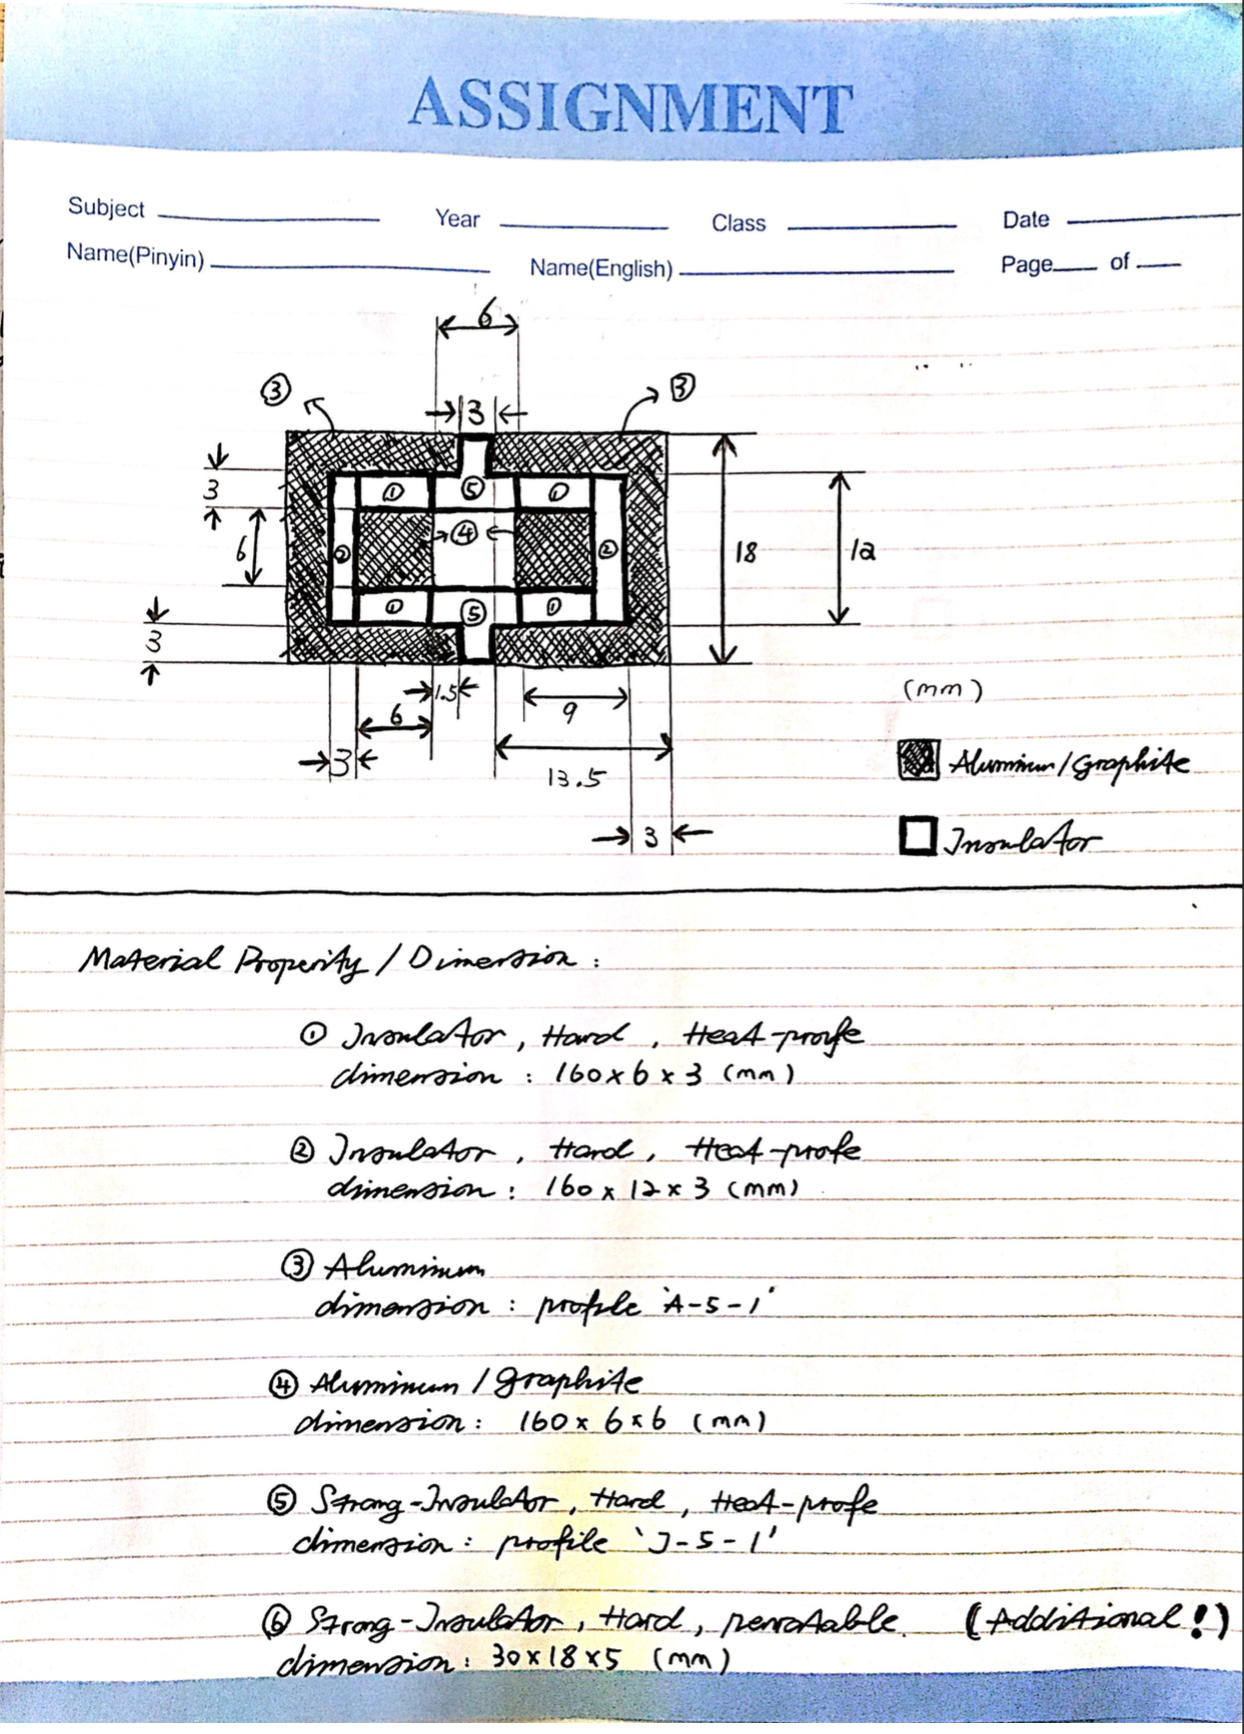 ASSIGNMENT
Subject Year Class Date
Name(Pinyin) Name(English) Page of
6
③ 3 ③
① ⑤ ①
3
6 ② ④ ② 18 12
① ⑤ ①
3
1.5
6 9
3 13.5
3
(mm)
Aluminum/Graphite
Insulator
Material Properity / Dimension :
① Insulator, Hard, Heat-profe
dimension : 160x6x3 (mm)
② Insulator, Hard, Heat-profe
dimension : 160x12x3 (mm)
③ Aluminum
dimension : profile 'A-5-1'
④ Aluminum / graphite
dimension : 160x6x6 (mm)
⑤ Strong-Insulator, Hard, Heat-profe
dimension : profile 'J-5-1'
⑥ Strong-Insulator, Hard, (Additional!)
dimension : 30x18x5 (mm)